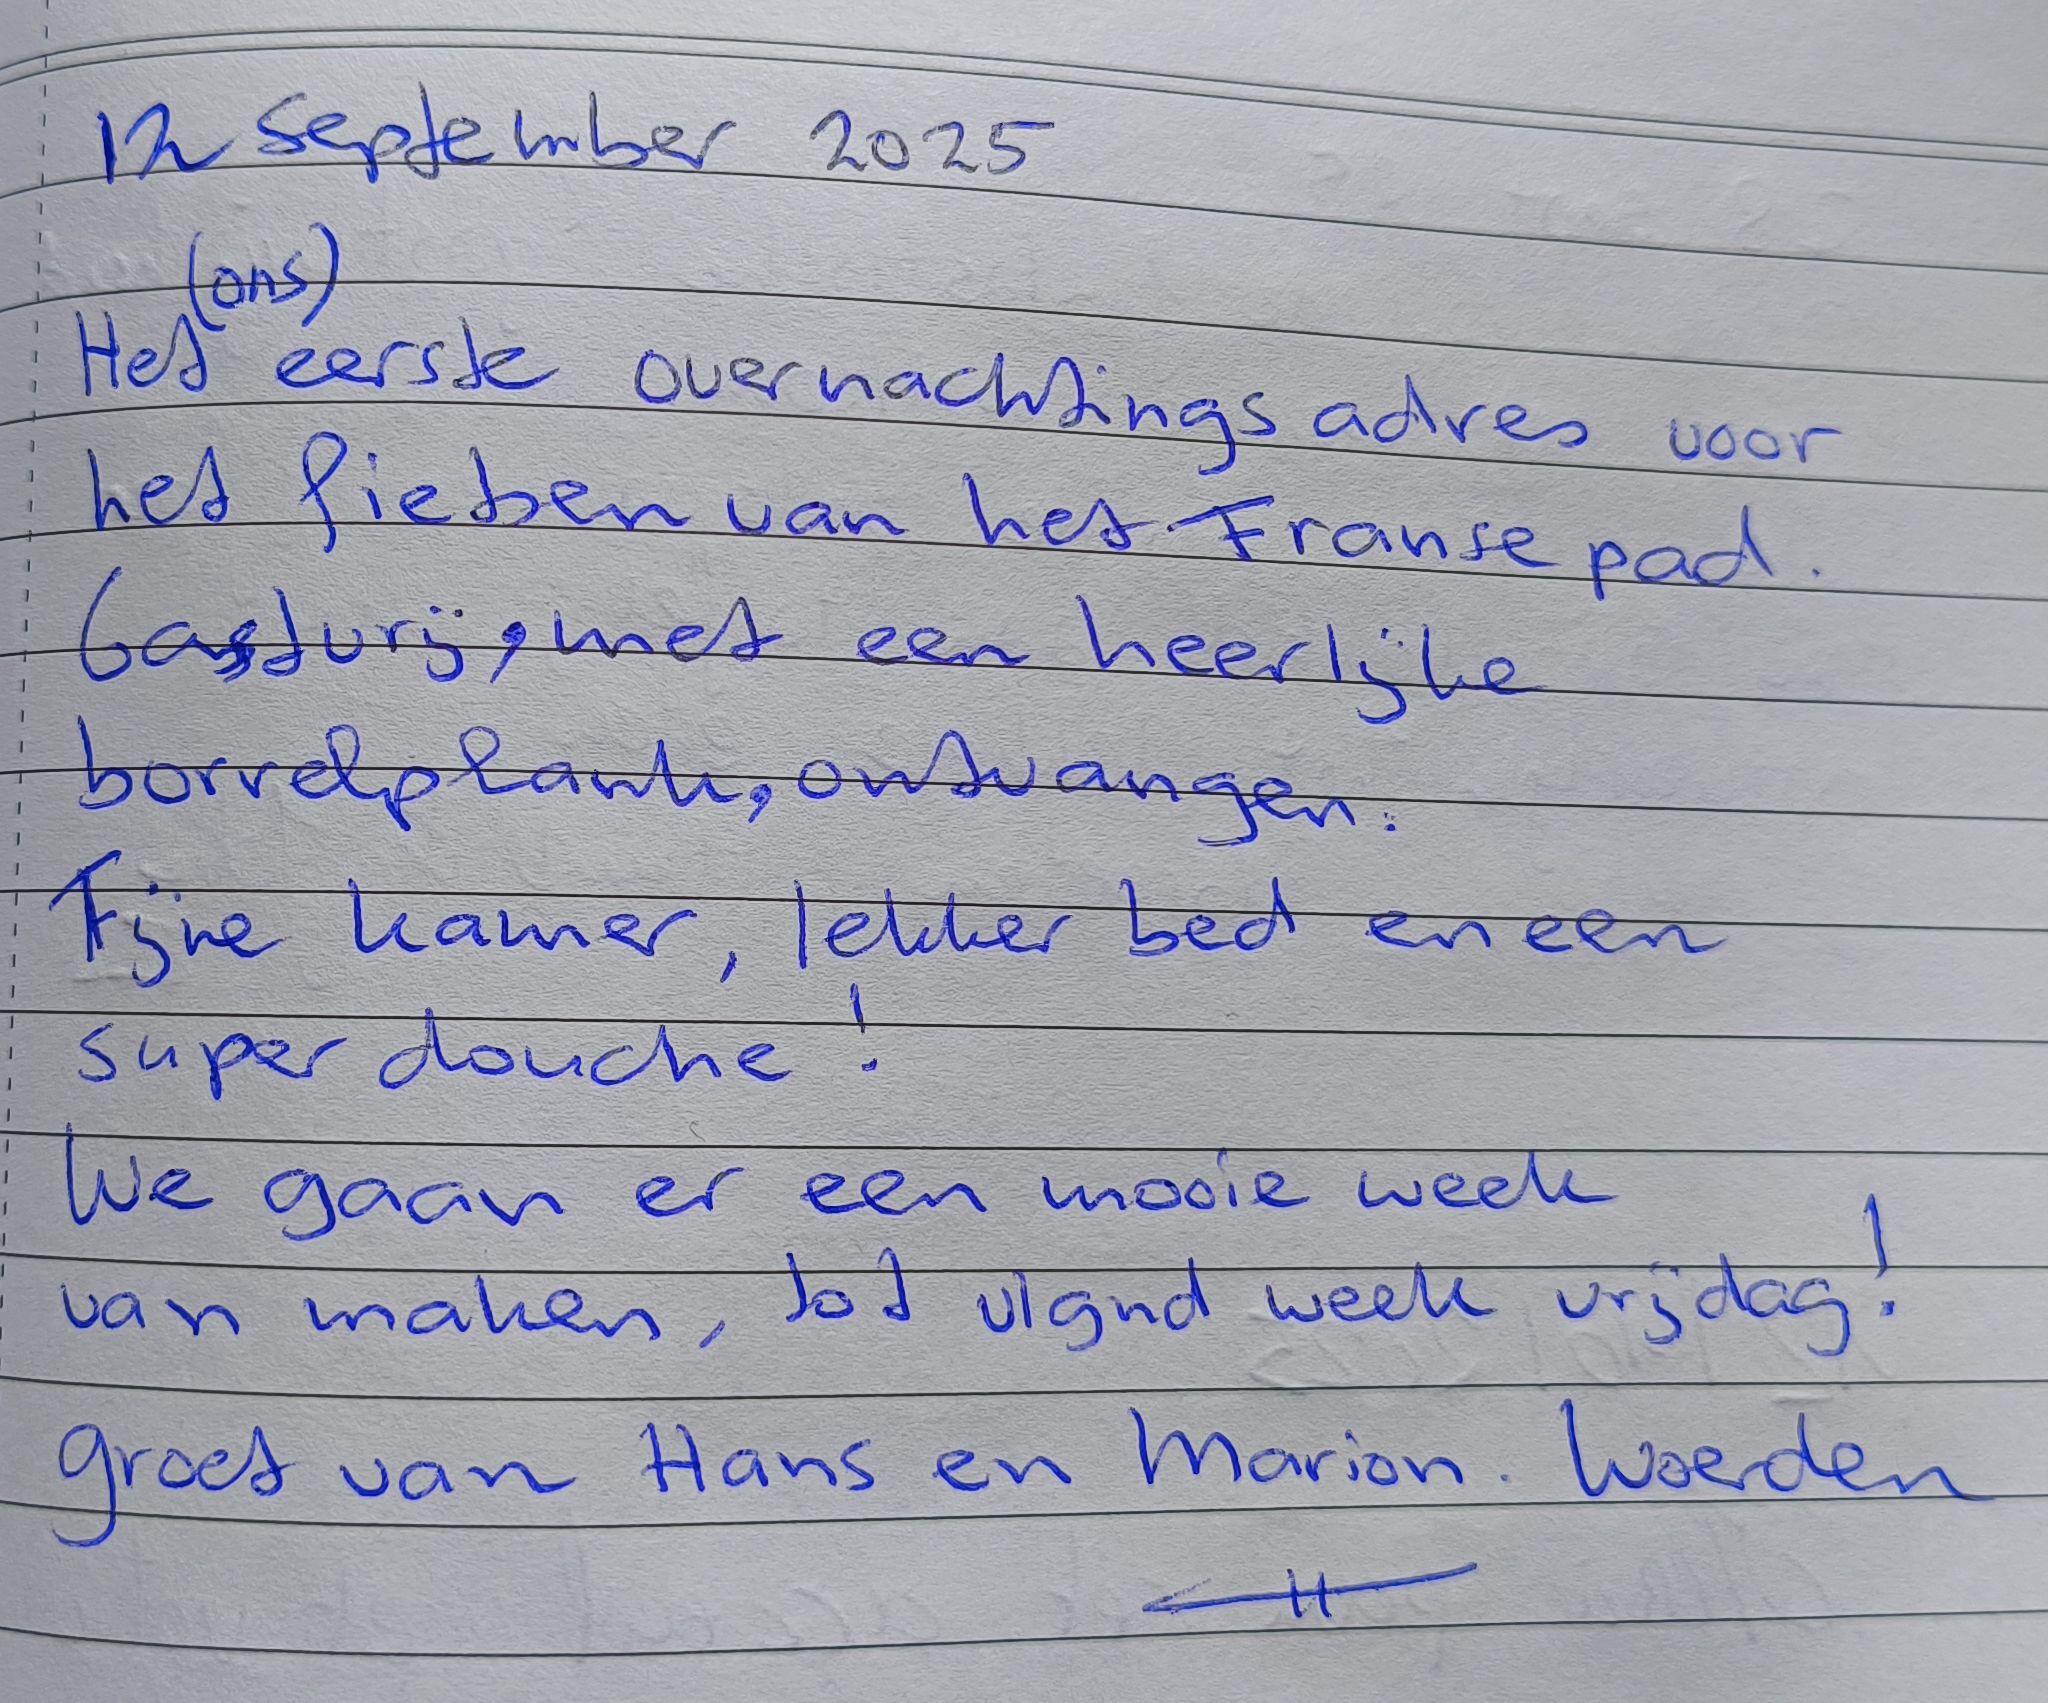 12 september 2025
(ons)
Het eerste overnachtings adres voor
het fietsen van het Franse pad.
Gastvrij, met een heerlijke
borrelplank, ontvangen.
Fijne kamer, lekker bed en een
super douche!
We gaan er een mooie week
van maken, tot vlgnd week vrijdag!
groet van Hans en Marion. Woerden